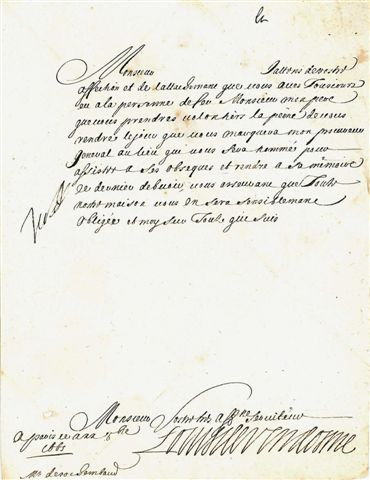 Monsieur Jattens de vostre
affection et de lattachemant que vous avez tousiours
eu a la personne de feu Monsieur mon pere
que vous prendres volontiers la peine de vous
rendre le jour que vous marquera mon procureur
general au lieu qui vous sera nommé pour
assister a ses obseques et rendre a sa mémoire
ce dernier debuoir vous asseurant que toute
nostre maison vous en sera sensiblemant
obligée et moy sur tout qui suis
Monsieur Vostre tres aff.ne serviteur
a paris ce
1665 Louis de Vendosme
Mr de